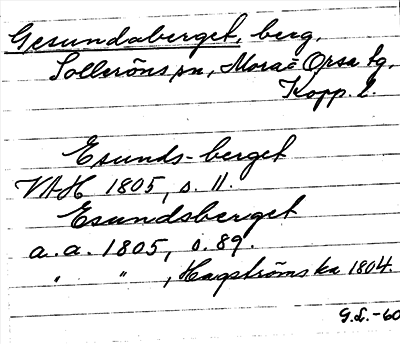 Gesundaberget, berg,
Solleröns sn, Mora = Orsa tg,
Kopp. l.
Esunds-berget
VAH 1805, s. 11.
Esundsberget
a. a. 1805, s. 89.
" " , Hagströms ka 1804.
G.L.-60